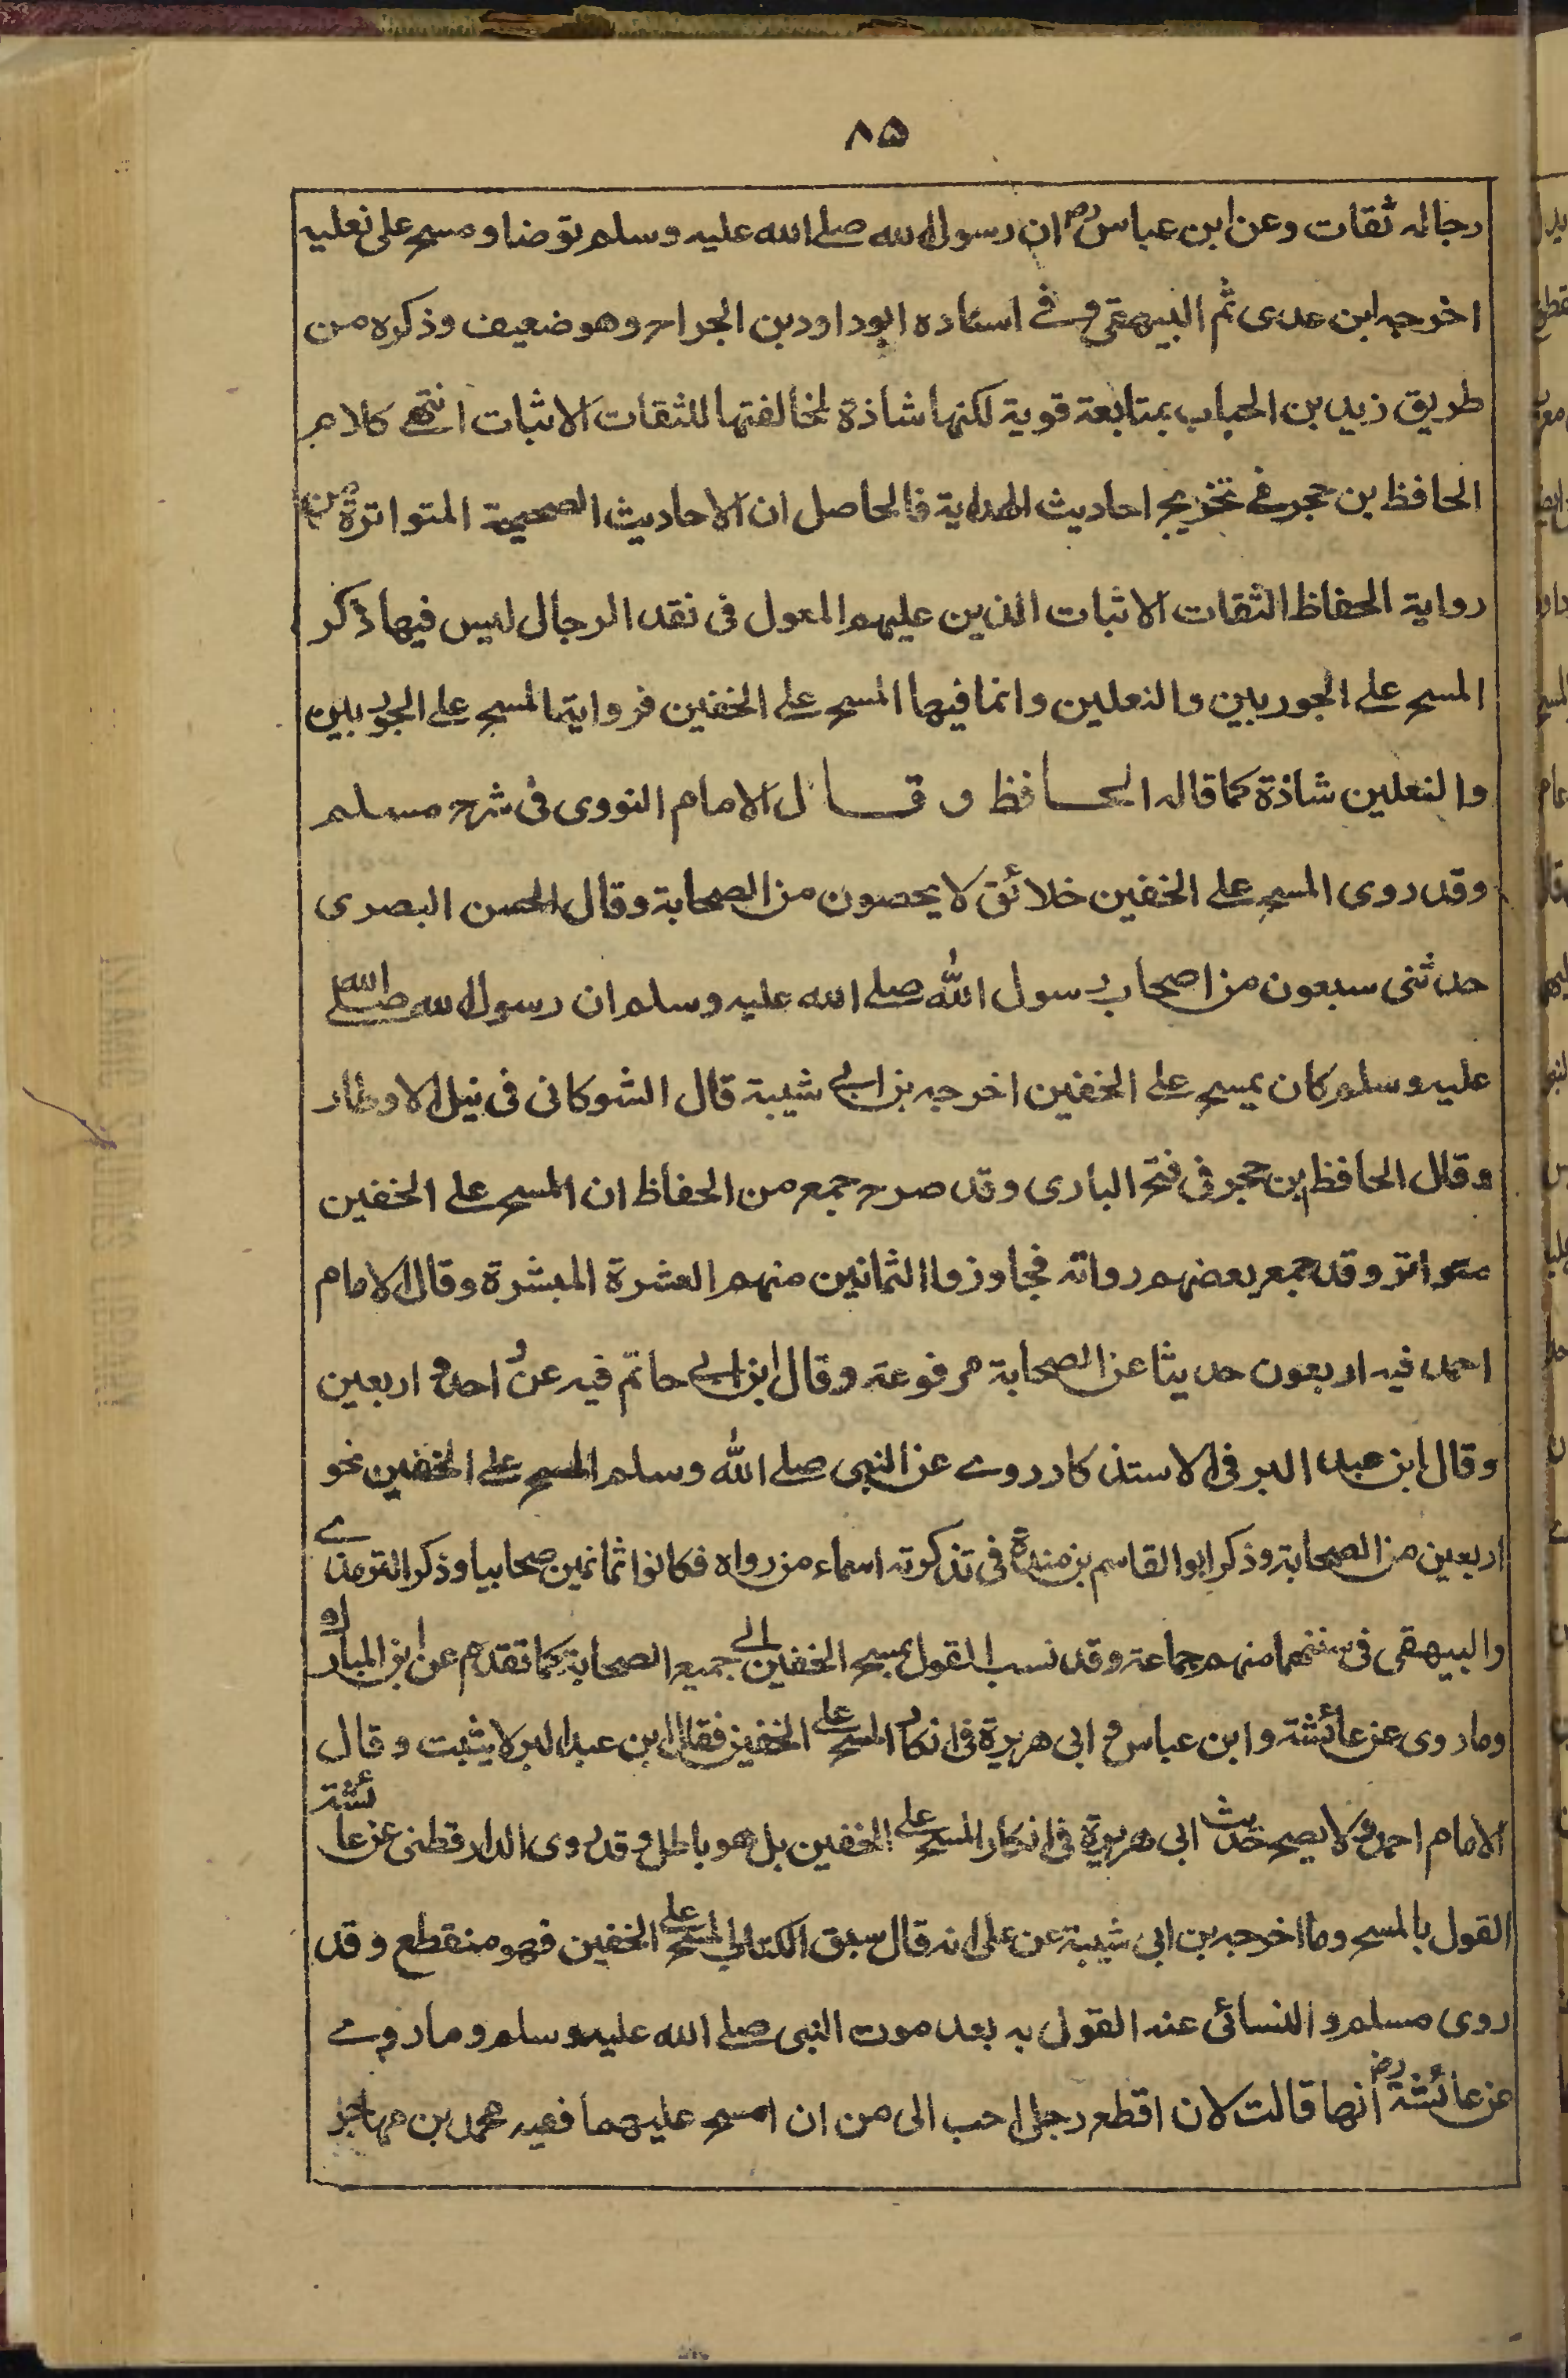 ۸۵
رجاله ثقات وعن ابن عباس رض ان رسول الله صلے الله عليه وسلم توضا ومسح على نعليه
اخرجه ابن عدى ثم البيهقى وفے اسناده ابوداود بن الجراح وهو ضعيف وذكره من
طريق زيد بن الحباب بمتابعة قوية لكنها شاذة لمخالفتها للثقات الاثبات انتهے كلام
الحافظ بن حجر فے تخريج احاديث الهداية فالحاصل ان الاحاديث الصحيحة المتواترة من
رواية الحفاظ الثقات الاثبات الذين عليهم المعول فى نقد الرجال ليس فيها ذكر
المسح علے الجوربين والنعلين وانما فيها المسح علے الخفين فرواية المسح علے الجوربين
والنعلين شاذة كما قاله الحافظ وقال الامام النووى فى شرح مسلم
وقد روى المسح علے الخفين خلائق لا يحصون من الصحابة وقال الحسن البصرى
حدثنى سبعون من اصحاب رسول الله صلے الله عليه وسلم ان رسول الله صلے الله
عليه وسلم كان يمسح علے الخفين اخرجه بن ابے شيبة قال الشوكانى فى نيل الاوطار
وقال الحافظ ابن حجر فى فتح البارى وقد صرح جمع من الحفاظ ان المسح علے الخفين
متواتر وقد جمع بعضهم رواته فجاوزوا الثمانين منهم العشرة المبشرة وقال الامام
احمد فيه اربعون حديثا عن الصحابة مرفوعة وقال ابن ابے حاتم فيه عن احد و اربعين
وقال ابن عبد البر فى الاستذكار روے عن النبى صلے الله وسلم المسح علے الخفين نحو
اربعين من الصحابة وذكر ابوالقاسم بن مندة فى تذكرته اسماء من رواه فكانوا ثمانين صحابيا وذكر الترمذے
والبيهقى فى سننهما منهم جماعة وقد نسب القول بمسح الخفين الے جميع الصحابة كما تقدم عن ابن المبارك
وما روى عن عائشة وابن عباس و ابى هريرة فى انكار المسح علے الخفين فقال ابن عبد البر لا يثبت وقال
الامام احمد و لا يصح حديث ابى هريرة فى انكار المسح علے الخفين بل هو باطل و قد روى الدارقطنى عن عائشة
القول بالمسح وما اخرجه بن ابى شيبة عن على انه قال سبق الكتاب المسح علے الخفين فهو منقطع وقد
روى مسلم والنسائى عنه القول به بعد موت النبى صلے الله عليه وسلم وما روے
عن عائشة رض انها قالت لان اقطع رجلى احب الى من ان امسح عليهما ففيه محمد بن مهاجر